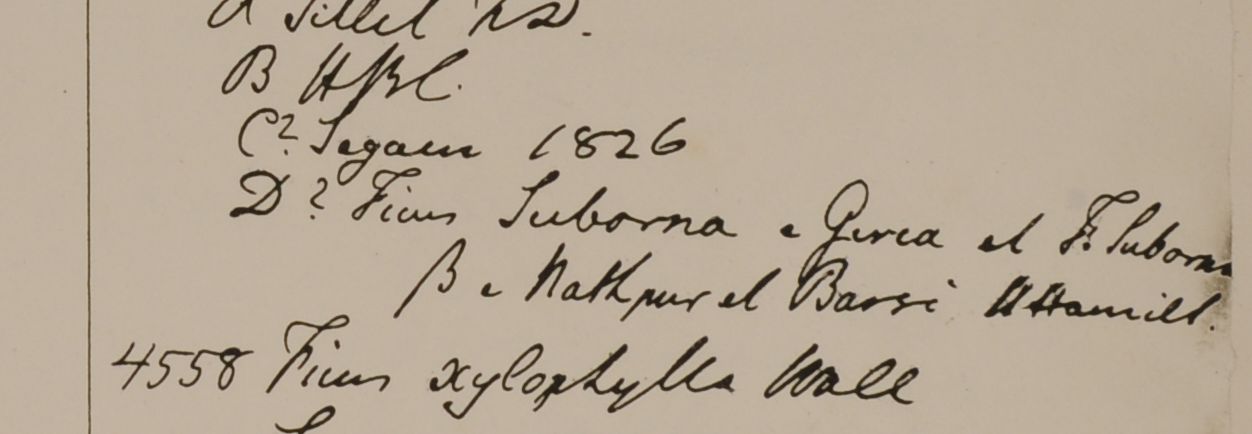 A Sillet
B HBC.
C? Segaen 1826
D? Ficus Suborna e Gerea et F. Suborna
β e Nathpur et Barsi HHamilt.
4558 Ficus xylophylla Wall